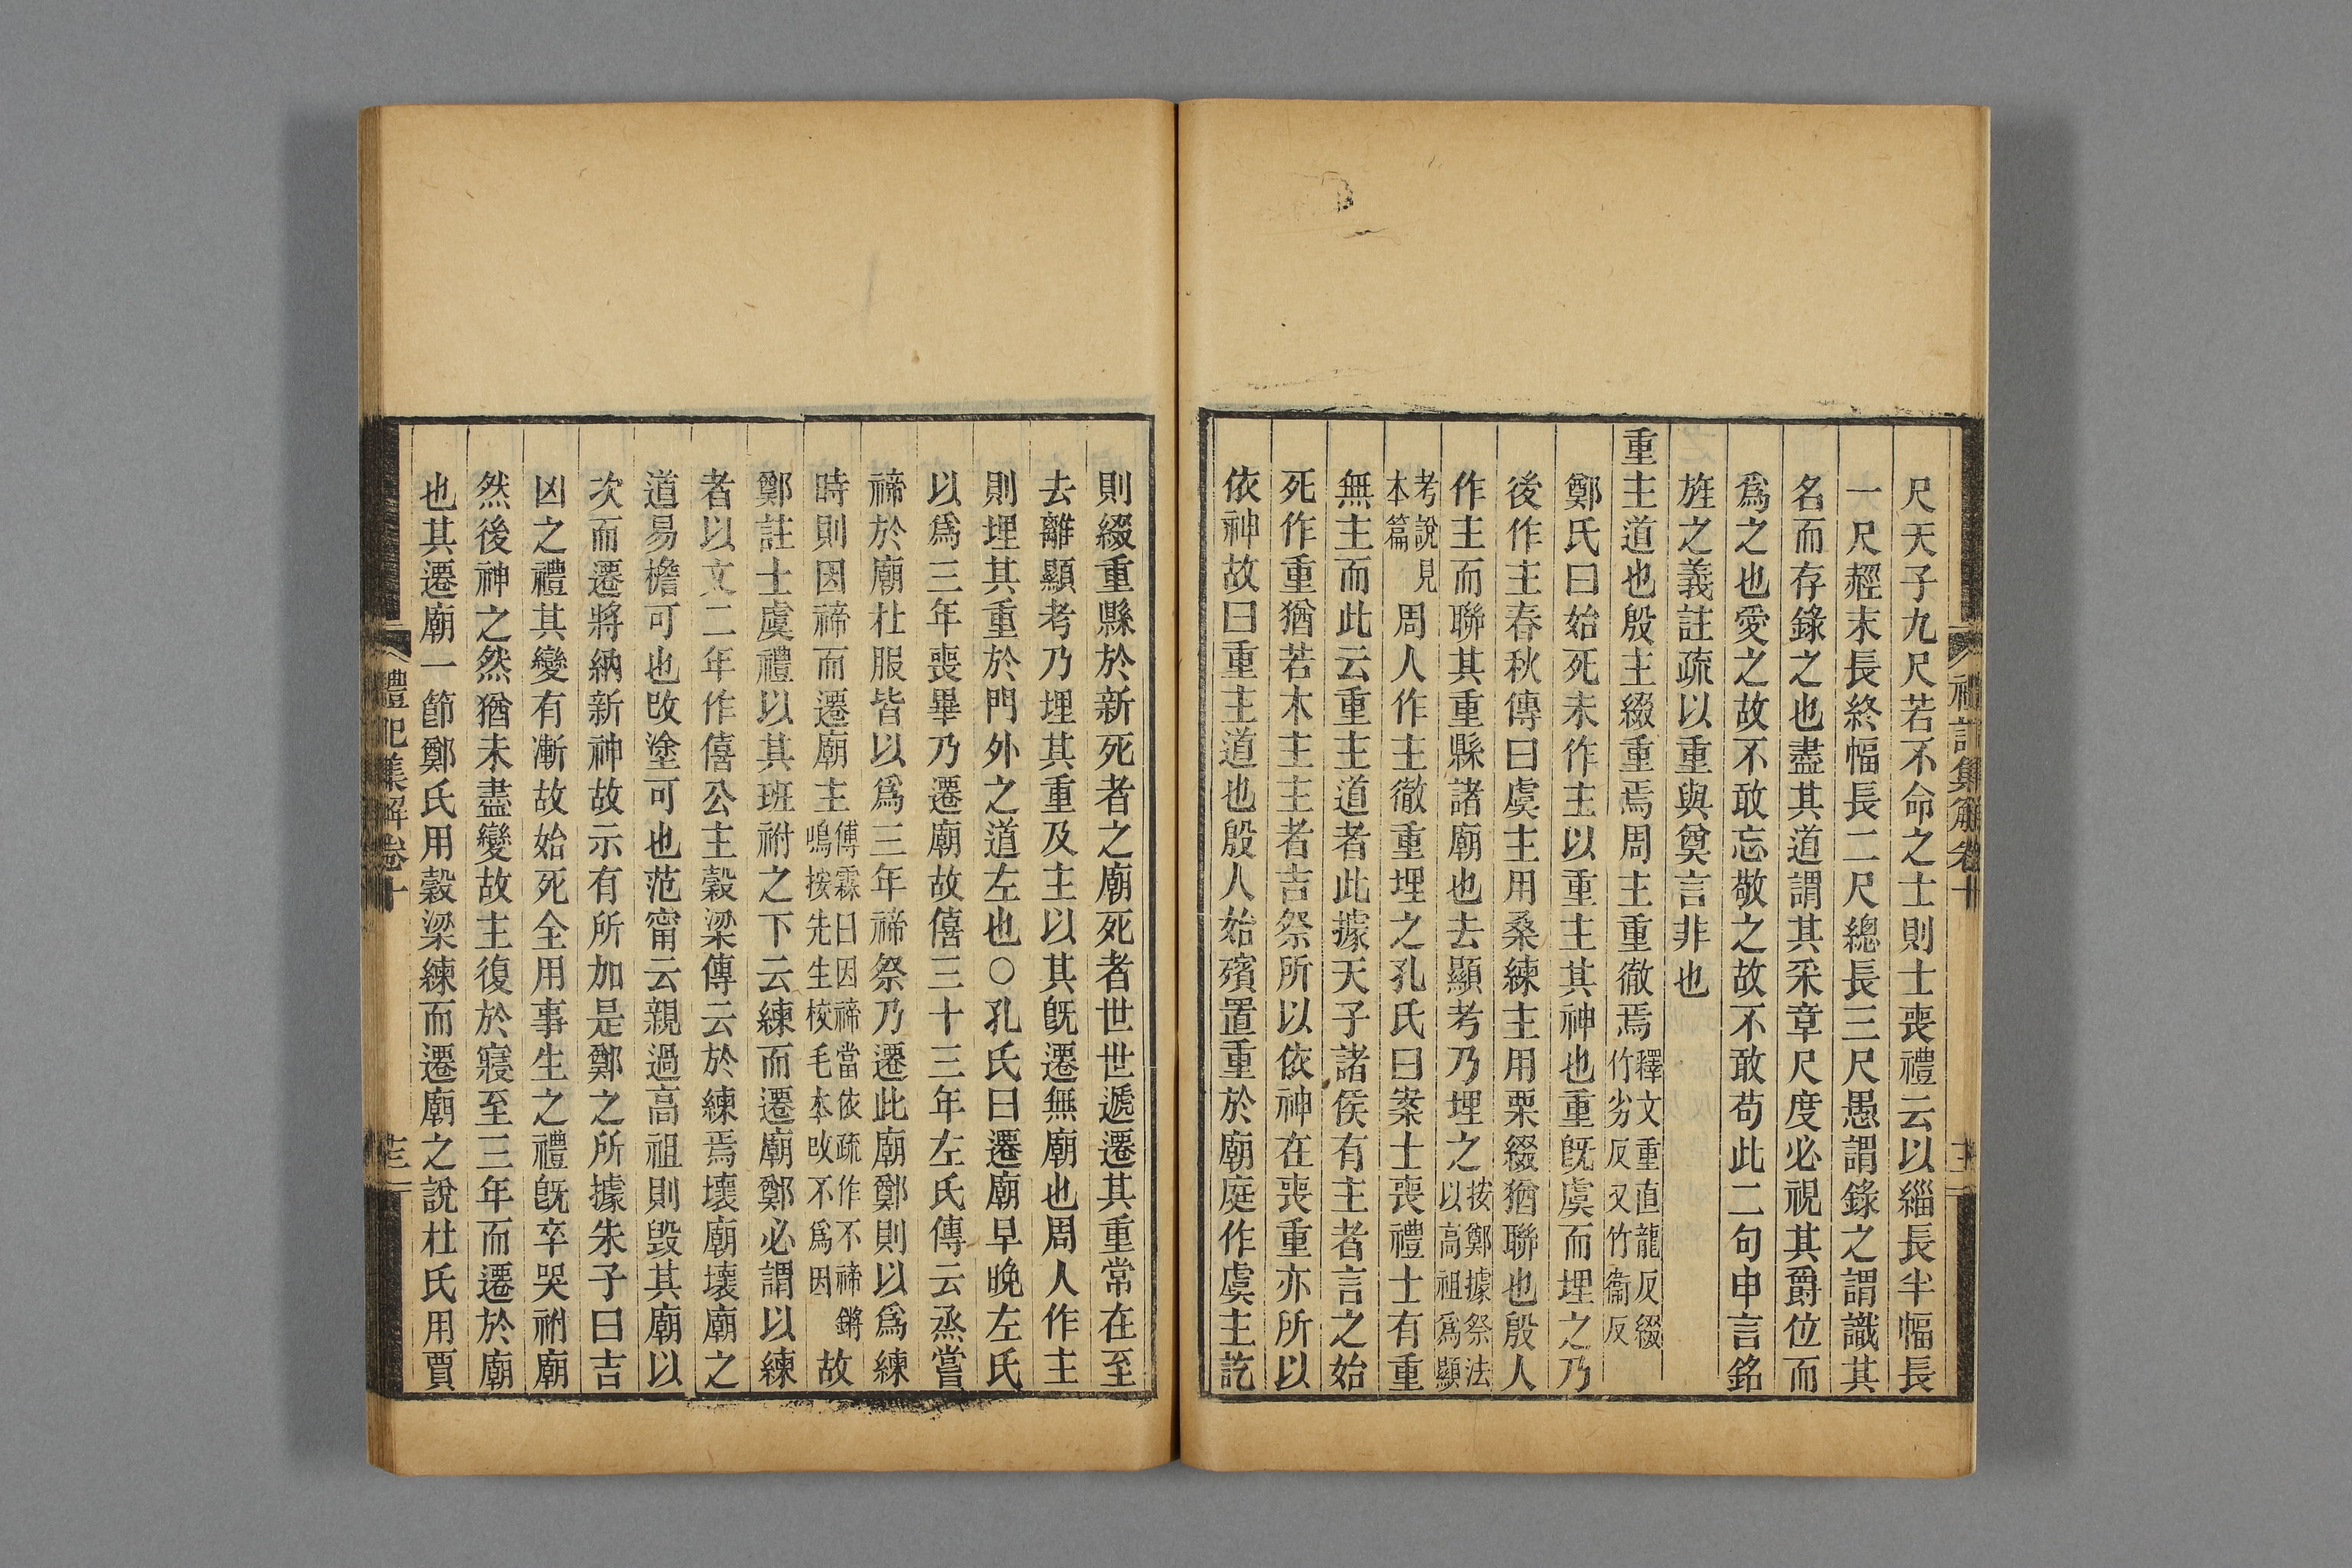 尺天子九尺若不命之士則士喪禮云以緇長半幅長
一尺䞓末長終幅長二尺總長三尺愚謂錄之謂識其
名而存錄之也盡其道謂其采章尺度必視其爵位而
爲之也愛之故不敢忘敬之故不敢苟此二句申言銘
旌之義註疏以重與奠言非也
重主道也殷主綴重焉周主重徹焉釋文重直龍反綴竹劣反又竹衞反
鄭氏曰始死未作主以重主其神也重旣虞而埋之乃
後作主春秋傳曰虞主用桑練主用栗綴猶聯也殷人
作主而聯其重縣諸廟也去顯考乃埋之按鄭據祭法以高祖爲顯
考說見本篇周人作主徹重埋之孔氏曰案士喪禮士有重
無主而此云重主道者此據天子諸侯有主者言之始
死作重猶若木主主者吉祭所以依神在喪重亦所以
依神故曰重主道也殷人始殯置重於廟庭作虞主訖
禮記集解卷十
則綴重縣於新死者之廟死者世世遞遷其重常在至
去離顯考乃埋其重及主以其旣遷無廟也周人作主
則埋其重於門外之道左也○孔氏曰遷廟早晚左氏
以爲三年喪畢乃遷廟故僖三十三年左氏傳云烝嘗
禘於廟杜服皆以爲三年禘祭乃遷此廟鄭則以爲練
時則因禘而遷廟主傅霖曰因禘當依疏作不禘鏘鳴按先生校毛本改不爲因故
鄭註士虞禮以其班祔之下云練而遷廟鄭必謂以練
者以文二年作僖公主穀梁傳云於練焉壞廟壞廟之
道易檐可也改塗可也范甯云親過高祖則毀其廟以
次而遷將納新神故示有所加是鄭之所據朱子曰吉
凶之禮其變有漸故始死全用事生之禮旣卒哭祔廟
然後神之然猶未盡變故主復於寢至三年而遷於廟
也其遷廟一節鄭氏用穀梁練而遷廟之說杜氏用賈
禮記集解卷十